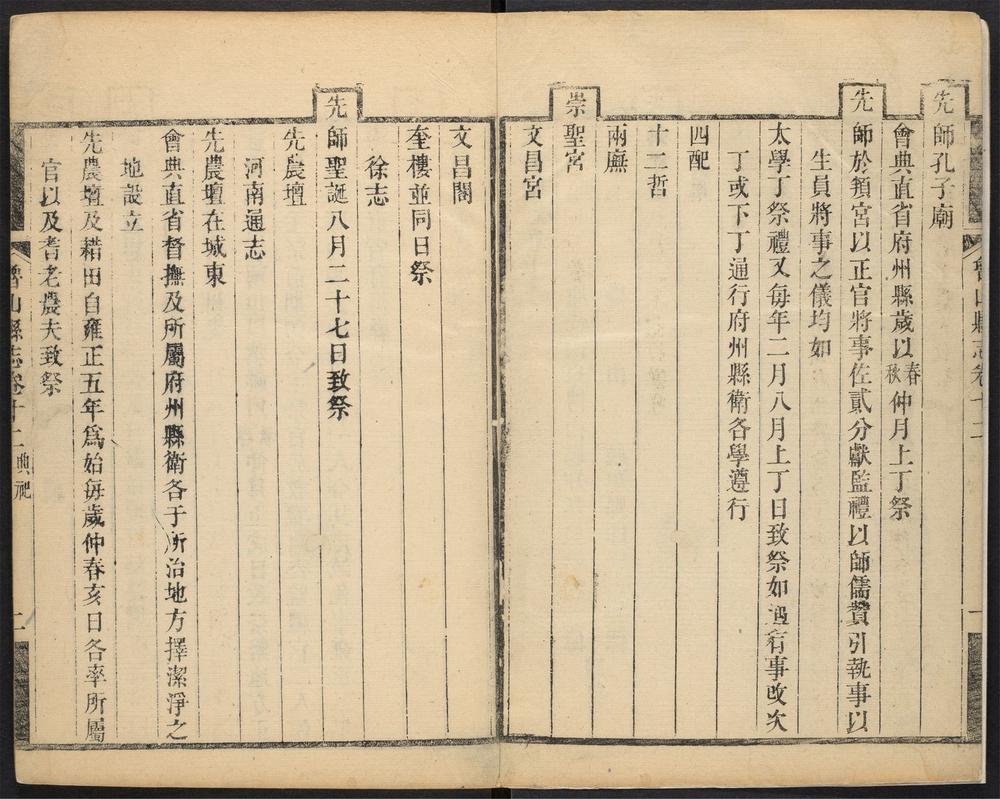 魯山縣志卷十二
先師孔子廟
會典直省府州縣歲以春秋仲月上丁祭
先師於頖宮以正官將事佐貳分獻監禮以師儒贊引執事以
生員將事之儀均如
太學丁祭禮又每年二月八月上丁日致祭如遇有事改次
丁或下丁通行府州縣衛各學遵行
四配
十二哲
兩廡
崇聖宮
文昌宮
文昌閣
奎樓並同日祭
徐志
先師聖誕八月二十七日致祭
先農壇
河南通志
先農壇在城東
會典直省督撫及所屬府州縣衛各于所治地方擇潔淨之
地設立
先農壇及耤田自雍正五年爲始每歲仲春亥日各率所屬
官以及耆老農夫致祭
魯山縣志卷十二 典祀 二